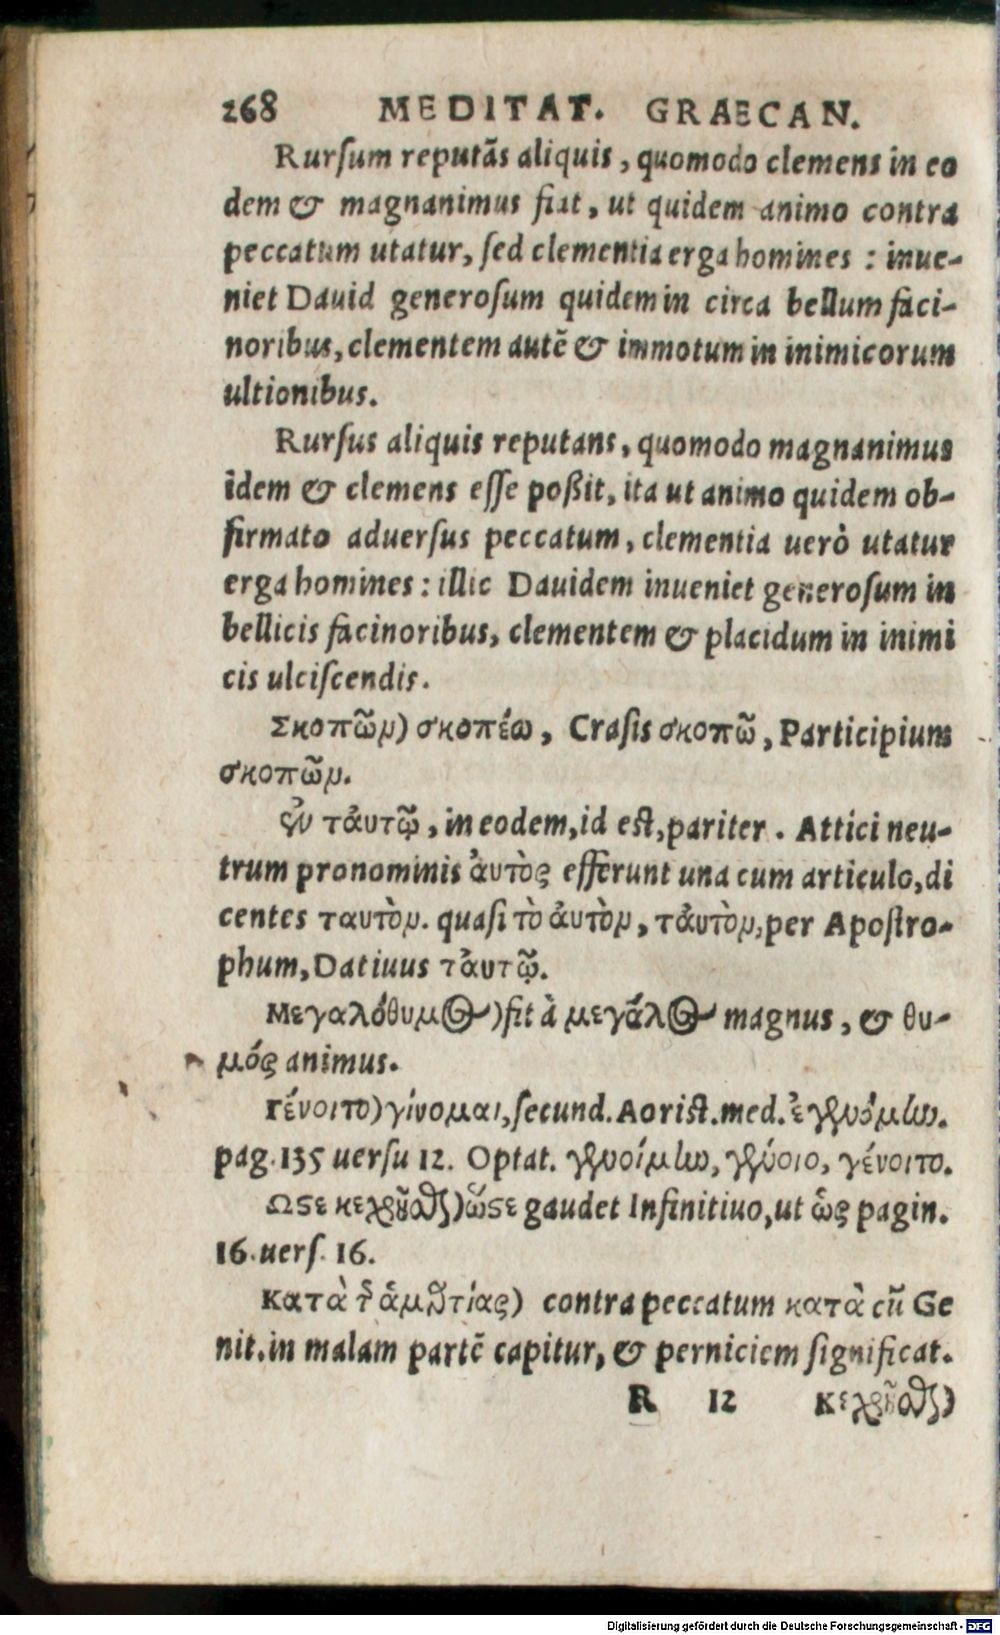 268 MEDITAT. GRAECAN.
Rurſum reputãs aliquis, quomodo clemens in eo
dem & magnanimus fiat, ut quidem animo contra
peccatum utatur, ſed clementia erga homines : inue-
niet Dauid generoſum quidem in circa bellum faci-
noribus, clementem autẽ & immotum in inimicorum
ultionibus.
Rurſus aliquis reputans, quomodo magnanimus
idem & clemens eſſe poßit, ita ut animo quidem ob-
firmato aduerſus peccatum, clementia uerò utatur
erga homines : illic Dauidem inueniet generoſum in
bellicis facinoribus, clementem & placidum in inimi
cis ulciſcendis.
Σκοπῶν) σκοπέω, Craſis σκοπῶ, Participium
σκοπῶν.
ἐν τἀυτῷ, in eodem, id eſt, pariter. Attici neu-
trum pronominis ἀυτὸς efferunt una cum articulo, di
centes ταυτὸν. quaſi τὸ ἀυτὸν, τἀυτὸν, per Apoſtro-
phum, Datiuus τἀυτῷ.
Μεγαλόθυμος) fit à μεγάλος magnus, & θυ-
μός animus.
Γένοιτο) γίνομαι, ſecund. Aoriſt. med. ἐγενόμην.
pag. 135 uerſu 12. Optat. γενοίμην, γένοιο, γένοιτο.
Ωϛε κεχρῆσθαι) ὥϛε gaudet Infinitiuo, ut ὡς pagin.
16. uerſ. 16.
Κατὰ τῆς ἁμαρτίας) contra peccatum κατὰ cũ Ge
nit. in malam partẽ capitur, & perniciem ſignificat.
R 12 Κεχρῆσθαι)
Digitalisierung gefördert durch die Deutsche Forschungsgemeinschaft - DFG